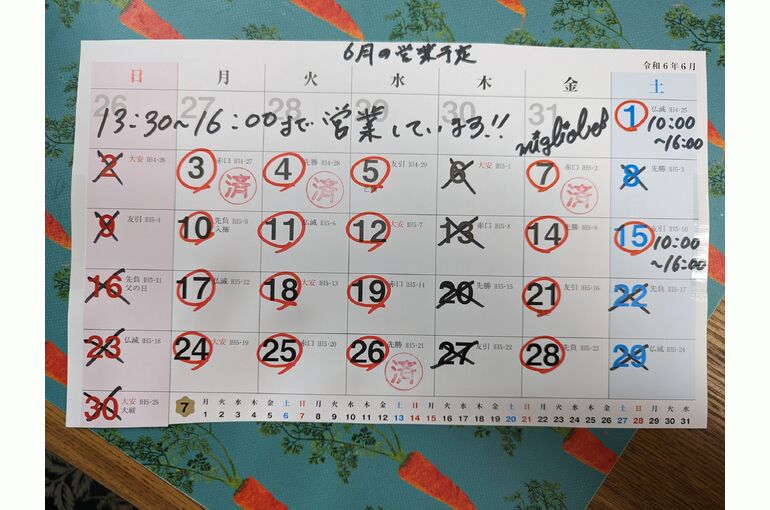 6月の営業予定
令和6年6月
日 月 火 水 木 金 土
26 27 28 29 30 31 1 仏滅 旧4·25
13:30~16:00まで営業しています!!
migliabel
10:00
~16:00
2 大安 旧4·26 3 赤口 旧4·27 4 先勝 旧4·28 5 友引 旧4·29 6 大安 旧5·1 7 赤口 旧5·2 8 先勝 旧5·3
済 済 済
9 友引 旧5·4 10 先負 旧5·5 11 仏滅 旧5·6 12 大安 旧5·7 13 赤口 旧5·8 14 先勝 旧5·9 15 友引 旧5·10
入梅
10:00
~16:00
16 先負 旧5·11 17 仏滅 旧5·12 18 大安 旧5·13 19 赤口 旧5·14 20 先勝 旧5·15 21 友引 旧5·16 22 先負 旧5·17
父の日
23 仏滅 旧5·18 24 大安 旧5·19 25 赤口 旧5·20 26 先勝 旧5·21 27 友引 旧5·22 28 先負 旧5·23 29 仏滅 旧5·24
済
30 大安 旧5·25
大祓
7 月 火 水 木 金 土 日 月 火 水 木 金 土 日 月 火 水 木 金 土 日 月 火 水 木 金 土 日 月 火 水
1 2 3 4 5 6 7 8 9 10 11 12 13 14 15 16 17 18 19 20 21 22 23 24 25 26 27 28 29 30 31